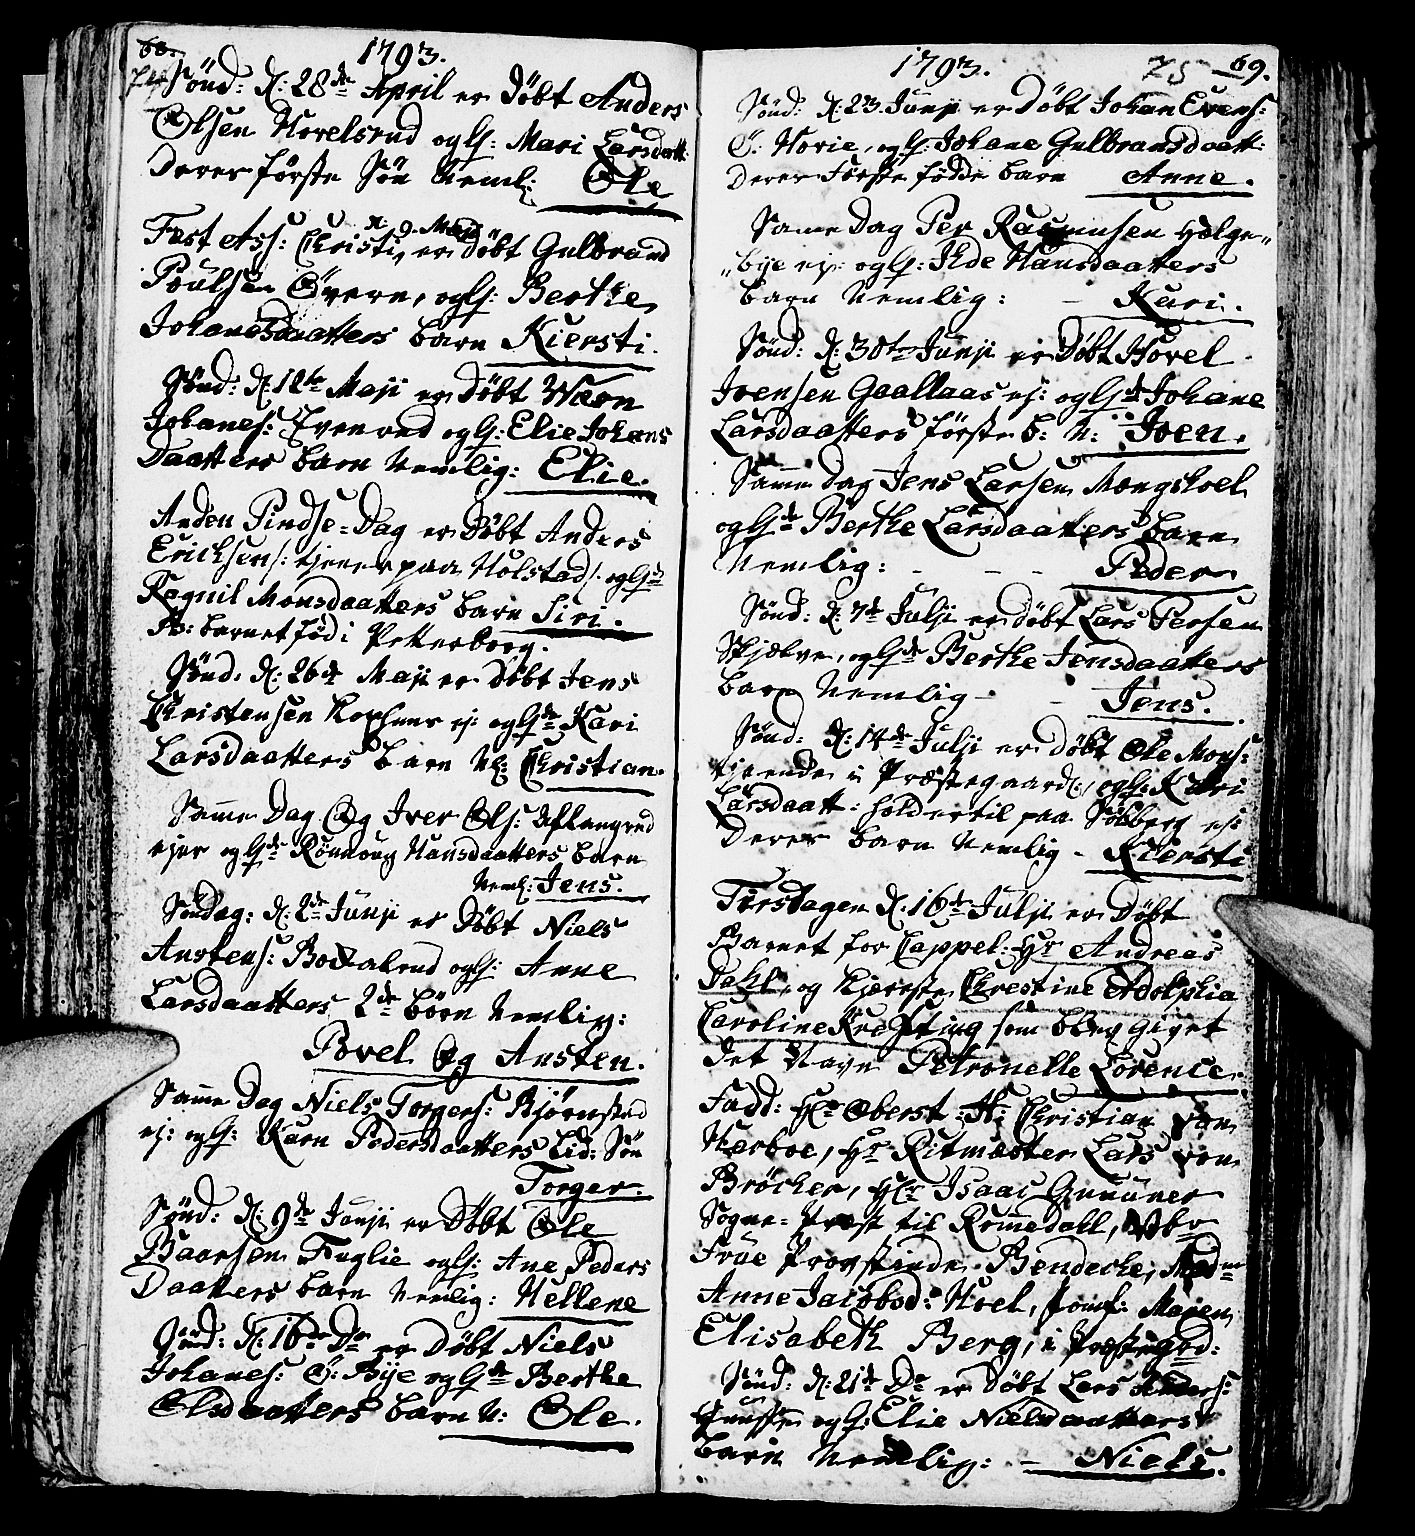 68.
1793.
74
Sönd: D: 28de April er Döbt Anders
Olsen Horelsrud og Hs: Mari Larsdatt:
Deres förste Sön Neml: Ole
Fest Ass: Christi, D: 9. Maji er Döbt Gulbrand
Poulsen Övern, og Hs: Berthe
Johanesdaatters barn Kiersti.
Sönd: D: 12te Maji er Döbt
Johanes: og Hs: Elie Johans
Daatters barn Nemlig: Elie.
Anden Pindse-Dag er Döbt Anders
Ericksen /: tjener paa Holstad /: og Hs
Ragnil Monsdaatters barn Siri.
NB: barnet föd i Petterborg.
Sönd. D: 26de Maji er Döbt Jens
Christensen ej: og Hde Kari
Larsdaatters barn N: Christian.
Samme Dag Og Iver Ols:
ejer og Hde Rönnoug Hansdaatters barn
Neml: Jens.
Söndag: D: 2de Junji er Döbt Niels
Austens: og Hs: Anne
Larsdaatters 2de börn Nemlig:
Povel Og Austen.
Samme Dag Niels Torgers: Kjörnstad
ej: og Hs: Karn Pedersdaatters Lid: Sön
Torger.
Sönd: D: 9de Junji er Döbt Ole
Baarsen Fuglie og Hs: Ane Peders
Daatters barn Nemlig: Hellene
Sönd: D: 16de Do er Döbt Niels
Johanes: Ö: Bye og Hde Berthe
Olsdaatters barn N: Ole.
1793.
75 69.
Sönd: D: 23. Junji er Döbt Johan Evens:
Ö: Horie, og Hs: Johane Gulbransdaatt:
Deres Förste födde barn Anne.
Samme Dag Per Rasmusen Helge„
„bye ej: og Hs: Ilde Hansdaatters
barn Nemlig: - Kari.
Sönd: D: 30te Junji er Döbt Horel
Joensen Gaallaas ej: og Hde Johane
Larsdaatters förste b: N: Joen.
Samme Dag Jens Larsen Mængshoel
og Hde Berthe Larsdaatters barn
Nemlig: - - - Peder
Sönd: D: 7de Julji er Döbt Lars Persen
Skjælve, og Hde Berthe Jensdaatters
barn Nemlig - - Jens.
Sönd: D: 14de Julji er Döbt Ole Mons:
tjenende i Præstegaard:, og Hs: Kari
Larsdaatt: holder til paa Söbberg ej:
Deres barn Nemlig - Kiersti
Tirsdagen D. 16de Julji er Döbt
Barnet for Cappel: Hr Andreas
Dahl, og Kjæreste Chrestine Adolphia
Caroline Krefting som blev givet
det Navn Petronelle Lorence.
Fadd: Hr Oberst: H: Christian von
Hærboe, Hr Ritmæster Lars von
Bröcker, Hr Isaac Grüüner
Sogne-Præst til Romedahl,
Frue Provstinde Bendeche, Madme
Anne Jacobsd: Hoel, Jomf: Maren
Elisabeth Berg, i Præstegrd:
Sönd: D: 21de Do er Döbt Lars Anders:
og Hs: Elie Nielsdaatters
barn Nemlig: - Niels.